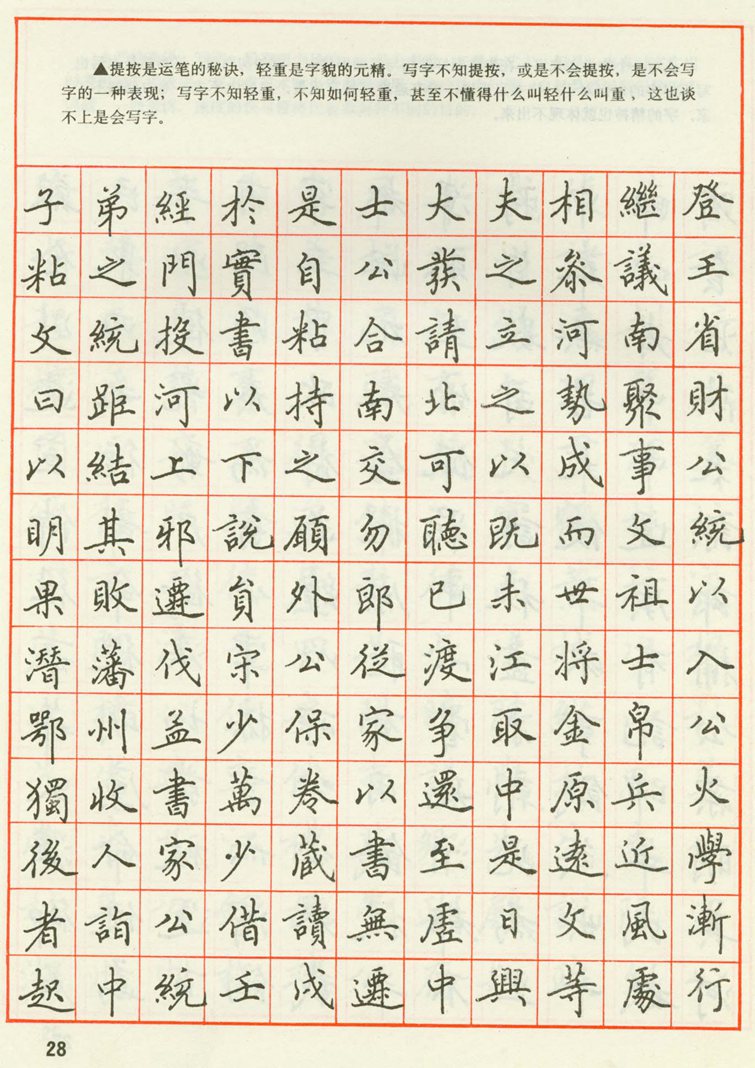 ▲提按是运笔的秘诀，轻重是字貌的元精。写字不知提按，或是不会提按，是不会写
字的一种表现；写字不知轻重，不知如何轻重，甚至不懂得什么叫轻什么叫重，这也谈
不上是会写字。
子弟經於是士大夫相繼登
粘之門實自公發之叅議王
文統投書粘合請立河南省
曰距河以持南北之勢聚財
以結上下之交可以成事公
明其邪說願勿聽既而文統
果敗遷員外郎已未世祖以
潛藩伐宋公從渡江將士入
鄂州益少保家爭取金帛公
獨收書萬卷以還中原兵火
後人家少藏書至是遠近學
者詣公借讀無虛日文風漸
起中統壬戌遷中興等處行
28